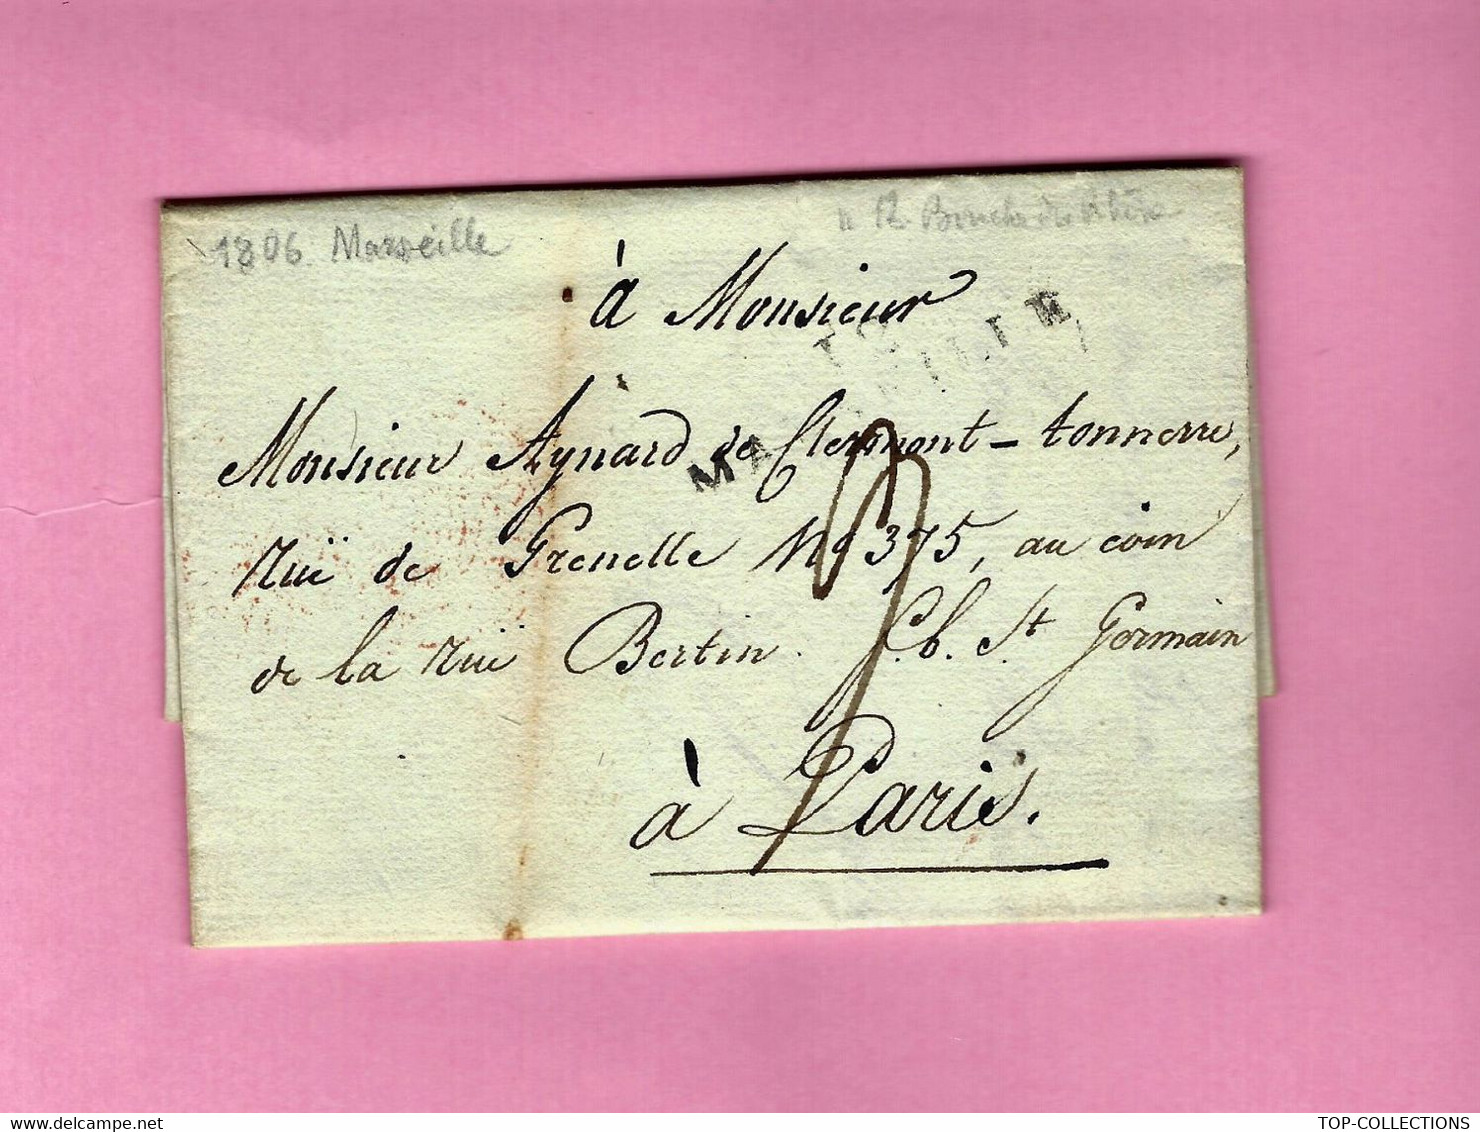 1806 Marseille
12 Bouches du Rhône
à Monsieur
Monsieur Aynard de Clermont-tonnerre,
ruë de Grenelle No 375, au coin
de la ruë Bertin. f.b. St Germain
à Paris.
TOP-COLLECTIONS